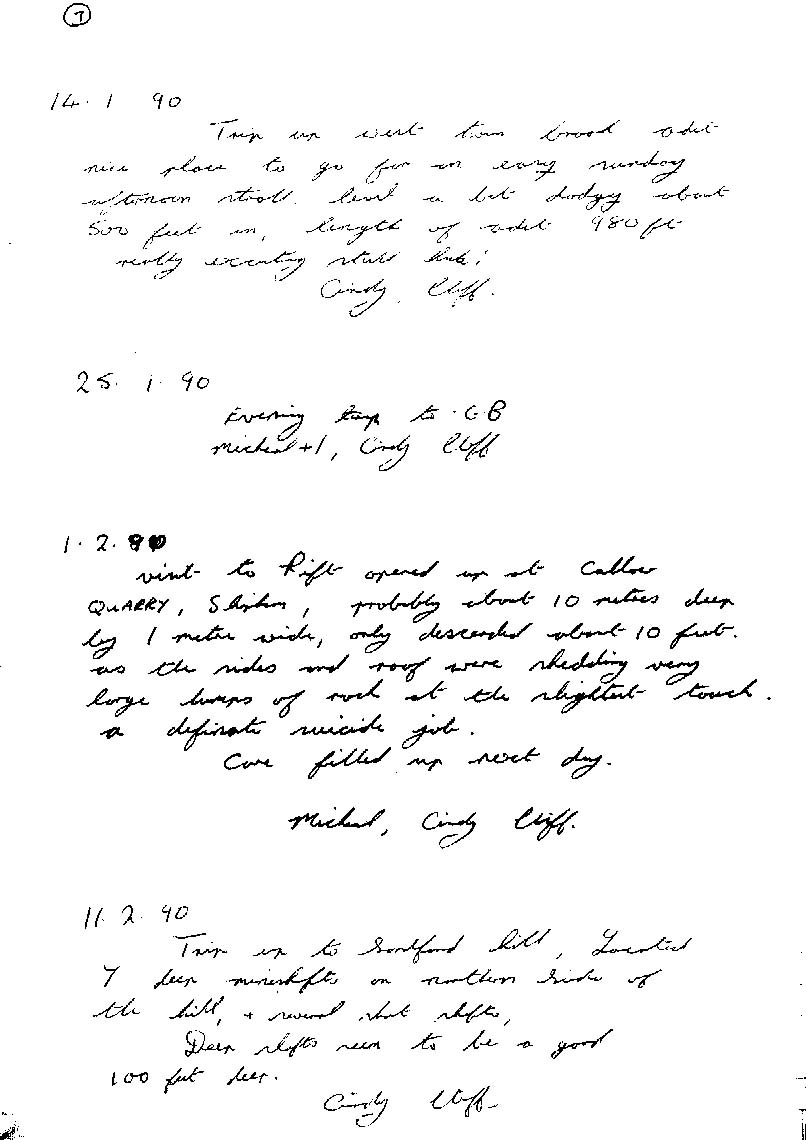 7
14. 1 90
Trip up west twin brook adit
nice place to go for an easy sunday
afternoon stroll. level a bit dodgy about
500 feet in, length of adit 980 ft
really exciting stuff
Cindy, Cliff.
25. 1. 90
Evening trip to G.B
Micheal +1, Cindy Cliff
1. 2. 90
visit to Rift opened up at Callow
QUARRY, Shipham, probably about 10 metres deep
by 1 metre wide, only descended about 10 feet.
as the sides and roof were shedding very
large lumps of rock at the slightest touch.
a definate suicide job.
Cave filled up next day.
Micheal, Cindy Cliff.
11. 2. 90
Trip up to Sandford hill, Located
7 deep mineshfts on northern side of
the hill, + several shafts,
Deep shfts seem to be a good
100 feet deep.
Cindy Cliff